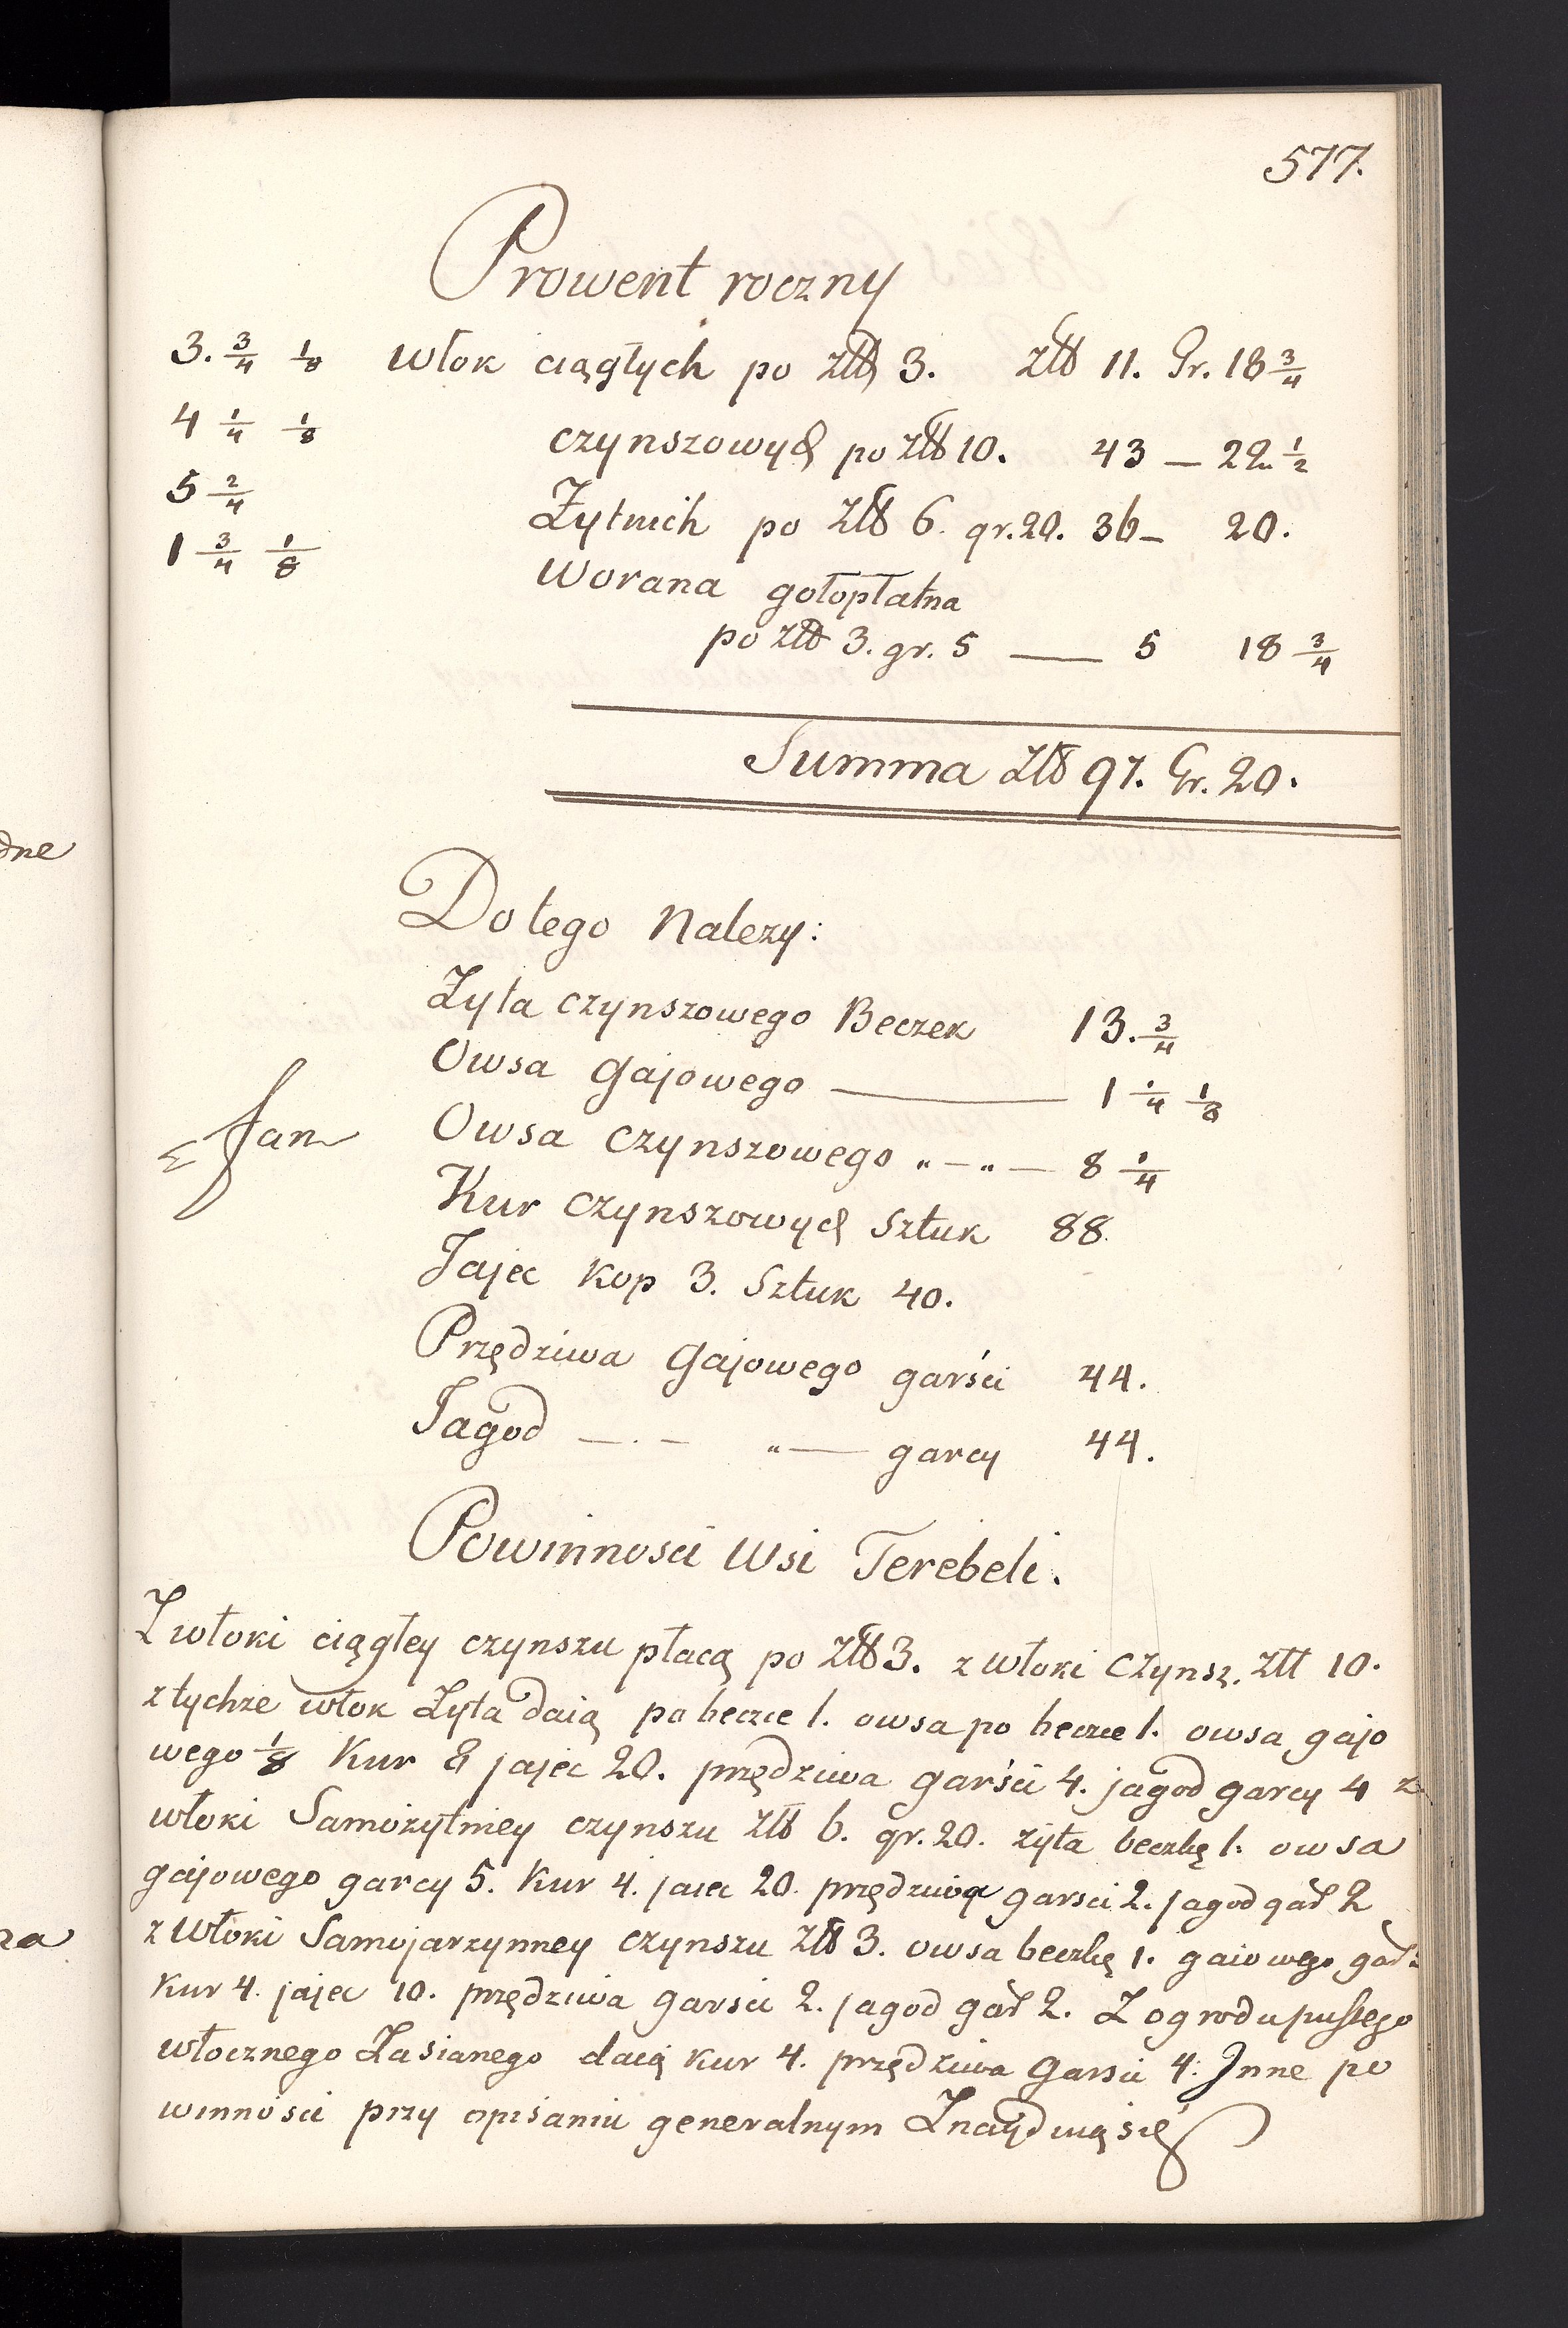 577.
Prowent roczny
3. 3/4 1/8 włok ciągłych po złt 3. złt 11. Gr. 18 3/4
4 1/4 1/8 czynszowych po złt 10. 43 — 22 1/2
5 2/4 Żytnich po Złt 6. gr. 20. 36 — 20.
1 3/4 1/8 Worana gołopłatna
po złt 3. gr. 5 — 5 18 3/4
Summa złt 97. Gr. 20.
Do tego Nalezy:
Zyta czynszowego Beczek 13. 3/4
Owsa Gajowego — 1 1/4 1/8
Owsa czynszowego „ — „ — 8 1/4
Kur czynszowych Sztuk 88.
Jajec Kop 3. Sztuk 40.
Przędziwa Gajowego garści 44.
Jagod — . — „ — garcy 44.
Powinnosci Wsi Terebeli.
Z włoki ciągłey czynszu płacą po złt 3. z włoki Czynsz. złt 10.
z tychze włok Zyta daią po beczce 1. owsa po beczce 1. owsa gajo
wego 1/8 Kur 8 jajec 20. przędziwa garści 4. jagod garcy 4 z
włoki Samożytniey czynszu złt 6. gr. 20. zyta beczkę 1. owsa
gajowego garcy 5. Kur 4. jaiec 20. przędziwa garsci 2. jagod gar 2
z Włoki Samojarzynney czynszu złt 3. owsa beczkę 1. gaiowego gar:
Kur 4. jajec 10. przędziwa garsci 2. jagod gar 2. Z ogrodu pustego
włocznego Zasianego daią kur 4. przędziwa Garsci 4: Inne po
winności przy opisaniu generalnym Znayduią się
dne
za